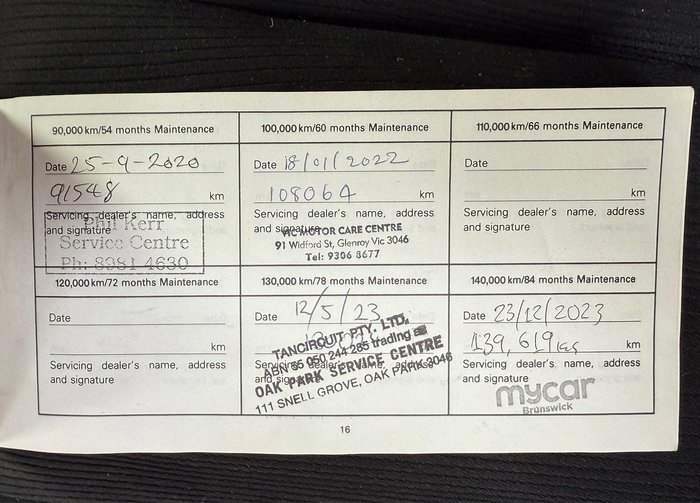 90,000 km/54 months Maintenance
Date 25-9-2020
91548 km
Servicing dealer's name, address
and signature
Phil Kerr
Service Centre
Ph: 8981 4630
100,000 km/60 months Maintenance
Date 18/01/2022
108064 km
Servicing dealer's name, address
and signature
VIC MOTOR CARE CENTRE
91 Widford St, Glenroy Vic 3046
Tel: 9306 8677
110,000 km/66 months Maintenance
Date
km
Servicing dealer's name, address
and signature
120,000 km/72 months Maintenance
Date
km
Servicing dealer's name, address
and signature
130,000 km/78 months Maintenance
12/5/23
TANCIRCUIT PTY. LTD.
ABN 55 050 244 285 trading as
OAK PARK SERVICE CENTRE
111 SNELL GROVE, OAK PARK 3046
140,000 km/84 months Maintenance
Date 23/12/2023
139,619 km
Servicing dealer's name, address
and signature
mycar
Brunswick
16